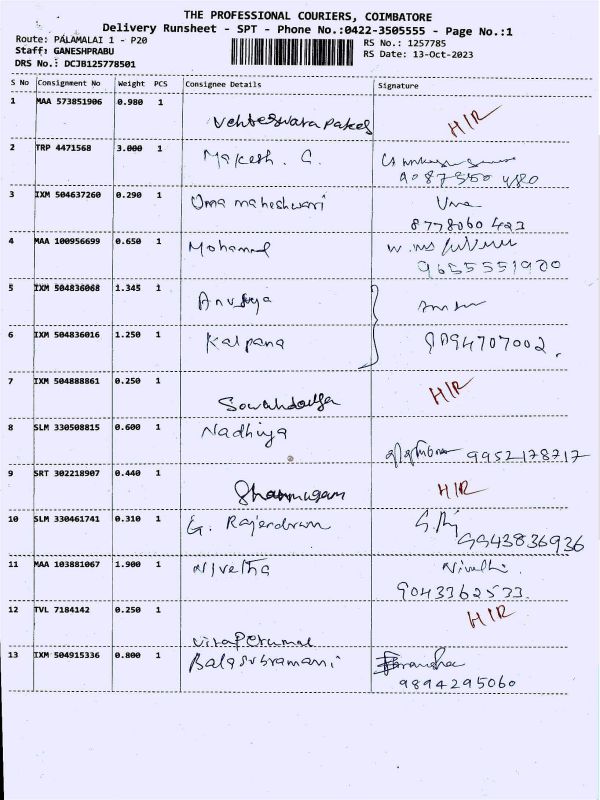 THE PROFESSIONAL COURIERS, COIMBATORE
Delivery Runsheet - SPT - Phone No.:0422-3505555 - Page No.:1
Route: PALAMALAI 1 - P20
RS No.: 1257785
Staff: GANESHPRABU
RS Date: 13-Oct-2023
DRS No.: DCJB125778501
S No Consignment No Weight PCS Consignee Details Signature
1 MAA 573851906 0.980 1 H/R
2 TRP 4471568 3.000 1 Makesh. G.
3 IXM 504637260 0.290 1 Uma maheshwari Uma
8778060423
4 MAA 100956699 0.650 1 Mohammed
9655551900
5 IXM 504836068 1.345 1 Anusuya
6 IXM 504836016 1.250 1 Kalpana 8094707002.
7 IXM 504888861 0.250 1 H/R
8 SLM 330508815 0.600 1 Nadhiya 9952178717
9 SRT 302218907 0.440 1 Shanmugam H/R
10 SLM 330461741 0.310 1 G. Rajendran
9943836936
11 MAA 103881067 1.900 1 Nivetha Nivethi.
9043362533.
12 TVL 7184142 0.250 1 H/R
13 IXM 504915336 0.800 1 Balasubramani
9894295060